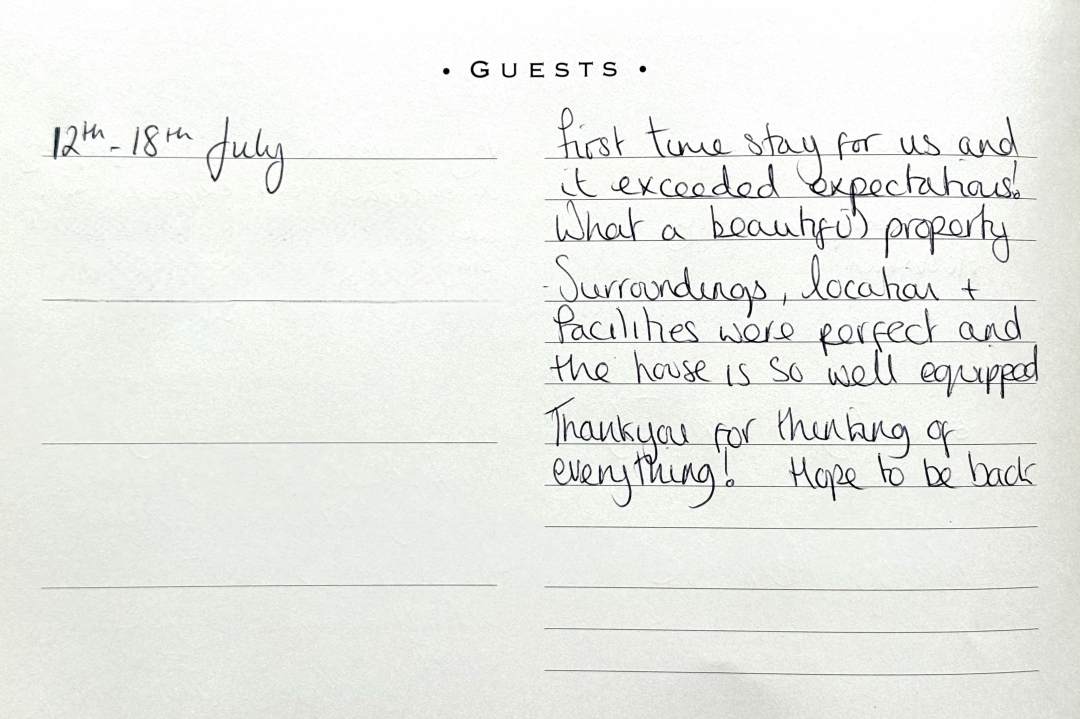 • GUESTS •
12th - 18th July
First time stay for us and
it exceeded expectations!
What a beautiful property
Surroundings, location +
facilities were perfect and
the house is so well equipped
Thankyou for thinking of
everything! Hope to be back